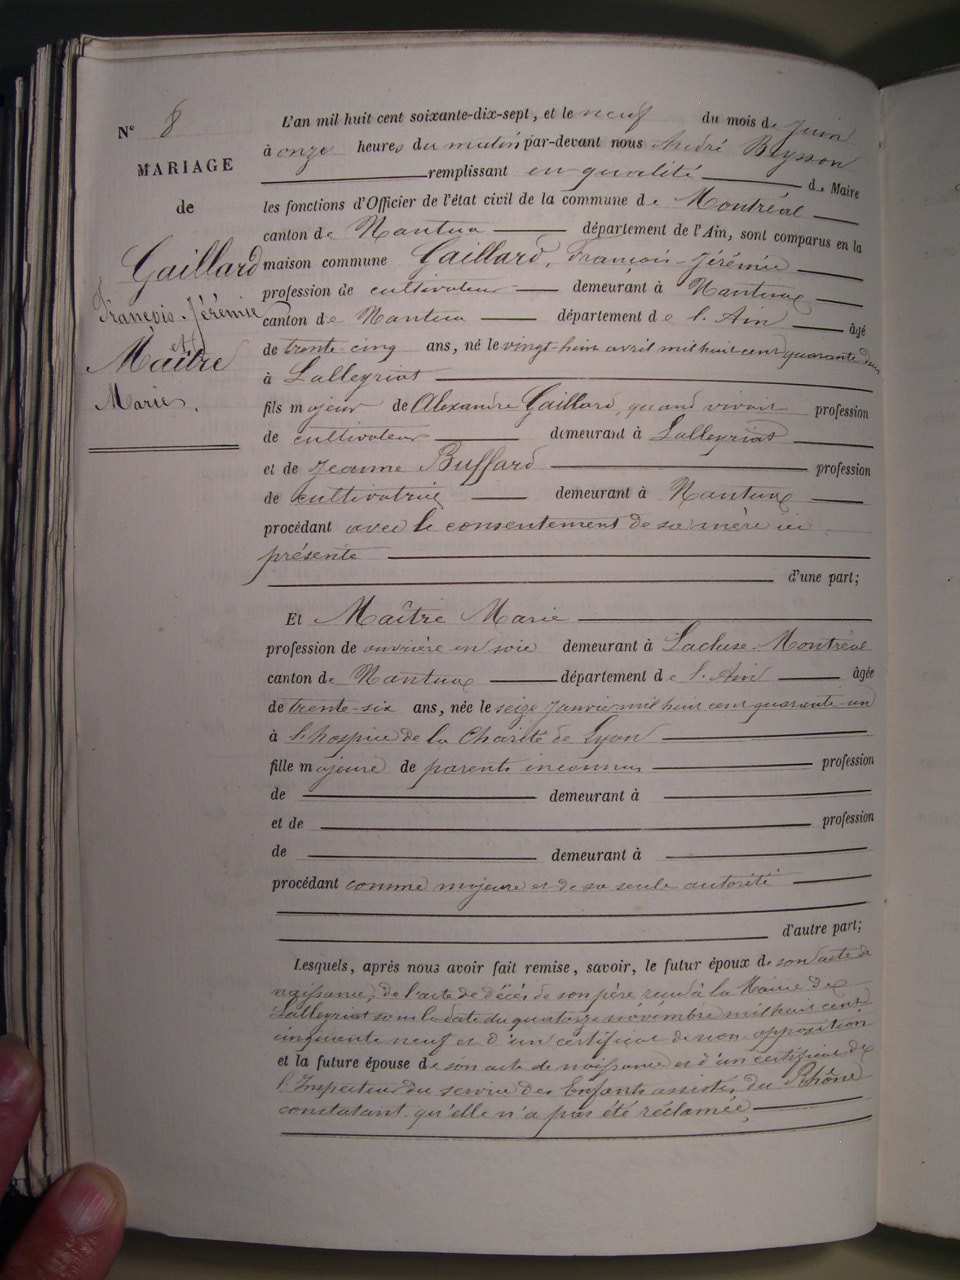 Nº 8
MARIAGE
de
Gaillard
François-Jérémie
et
Maître
Marie.
L'an mil huit cent soixante-dix-sept, et le neuf du mois de Juin
à onze heures du matin par-devant nous André Beysson
remplissant en qualité de Maire
les fonctions d'Officier de l'état civil de la commune de Montréal
canton de Nantua département de l'Ain, sont comparus en la
maison commune Gaillard, François-Jérémie
profession de cultivateur demeurant à Nantua
canton de Nantua département de l'Ain âgé
de trente-cinq ans, né le vingt-huit avril mil huit cent quarante deux
à Lalleyriat
fils majeur de Alexandre Gaillard, quand vivait profession
de cultivateur demeurant à Lalleyriat
et de Jeanne Buffard profession
de cultivatrice demeurant à Nantua
procédant avec le consentement de sa mère ici
présente
d'une part;
Et Maître Marie
profession de ouvrière en soie demeurant à Lacluse-Montréal
canton de Nantua département de l'Ain âgée
de trente-six ans, née le seize Janvier mil huit cent quarante-un
à l'hospice de la Charité de Lyon
fille majeure de parents inconnus profession
de demeurant à
et de profession
de demeurant à
procédant comme majeure et de sa seule autorité
d'autre part;
Lesquels, après nous avoir fait remise, savoir, le futur époux de son acte de
naissance, de l'acte de décès de son père reçu à la Mairie de
Lalleyriat sous la date du quatorze novembre mil huit cent
cinquante neuf et d'un certificat de non opposition
et la future épouse de son acte de naissance et d'un certificat de
l'Inspecteur du service des Enfants assistés du Rhône
constatant qu'elle n'a pas été réclamée,